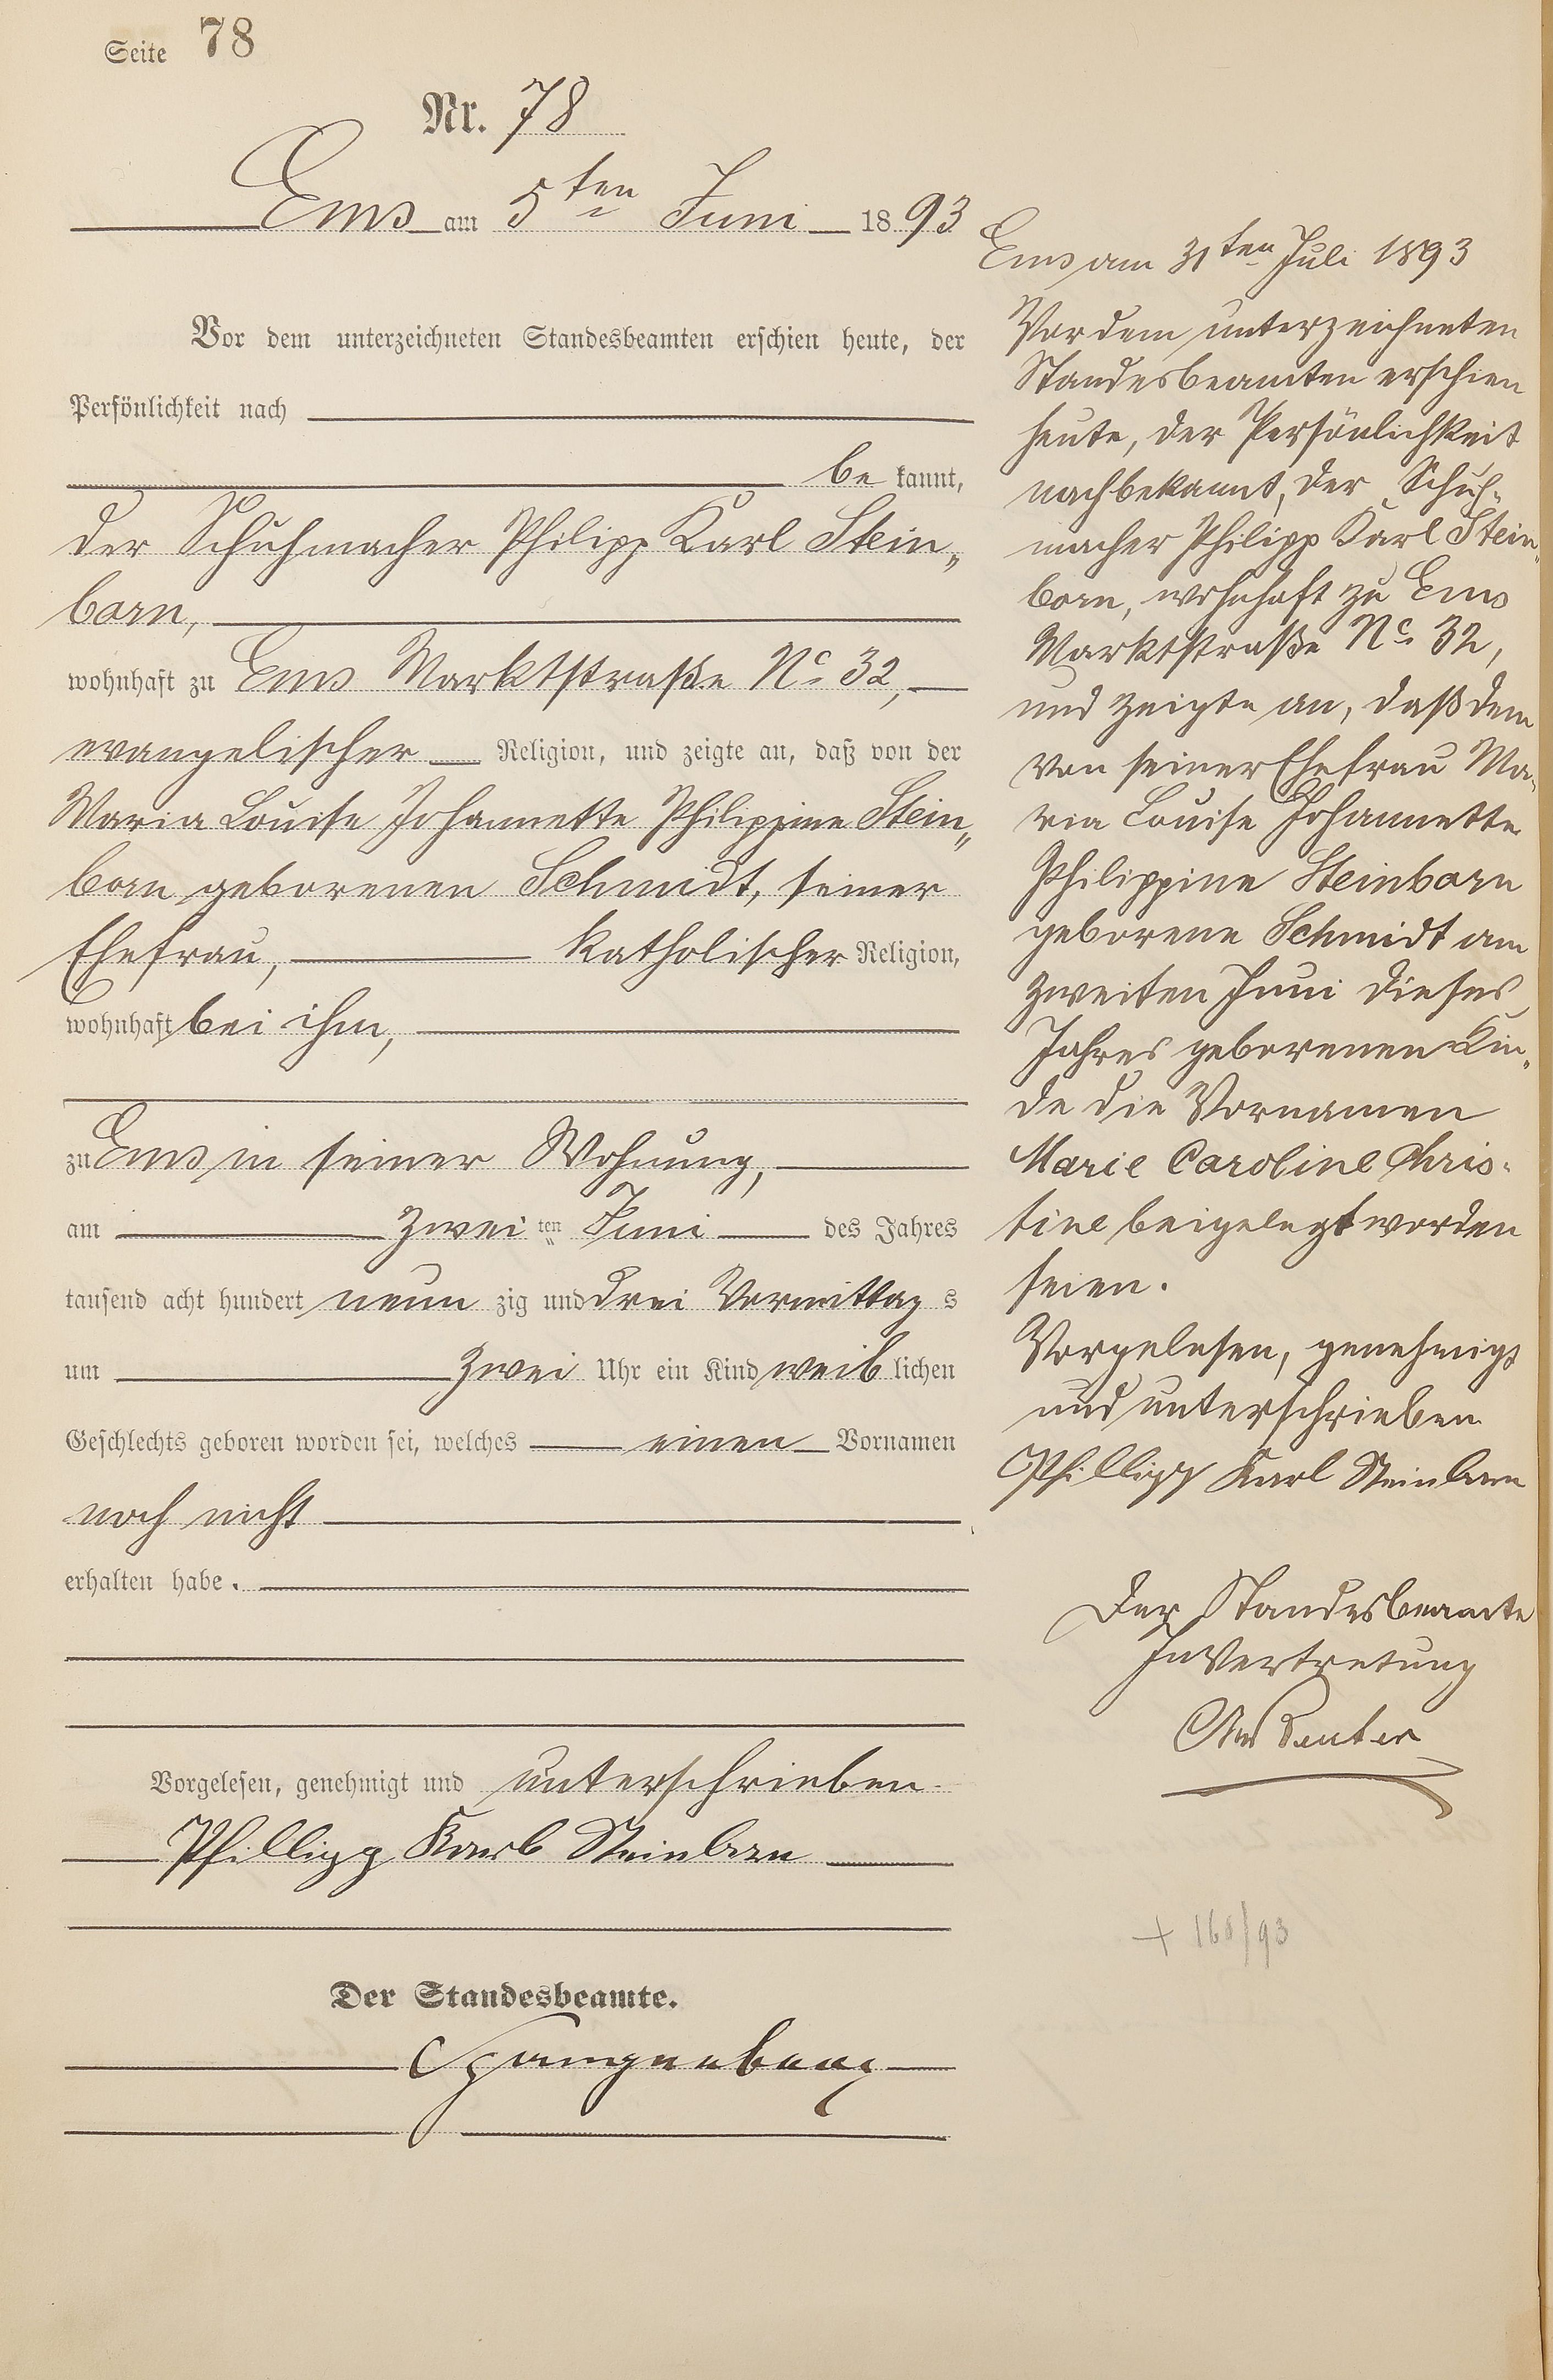 Seite 78
Nr. 78
Ems am 5ten Juni 1893
Vor dem unterzeichneten Standesbeamten erschien heute, der
Persönlichkeit nach
be kannt,
der Schuhmacher Philipp Karl Stein„
born,
wohnhaft zu Ems Marktstraße No 32,
evangelischer Religion, und zeigte an, daß von der
Maria Louise Johannette Philippine Stein„
born geborenen Schmidt, seiner
Ehefrau, katholischer Religion,
wohnhaft bei ihm,
zu Ems in seiner Wohnung,
am zwei ten Juni des Jahres
tausend acht hundert neun zig und drei Vormittag s
um zwei Uhr ein Kind weib lichen
Geschlechts geboren worden sei, welches einen Vornamen
noch nicht
erhalten habe.
Vorgelesen, genehmigt und unterschrieben
Phillipp Karl Steinborn
Der Standesbeamte.
Spangenberg
Ems am 31ten Juli 1893
Vor dem unterzeichneten
Standesbeamten erschien
heute, der Persönlichkeit
nach bekannt, der Schuh-
macher Philipp Karl Stein„
born, wohnhaft zu Ems
Marktstraße No 32,
und zeigte an, daß dem
von seiner Ehefrau Ma-
ria Louise Johannette
Philippine Steinborn
geborene Schmidt am
zweiten Juni dieses
Jahres geborenen Kin„
de die Vornamen
Marie Caroline Chris-
tine beigelegt worden
seien.
Vorgelesen, genehmigt
und unterschrieben
Phillipp Karl Steinborn
Der Standesbeamte
In Vertretung
+ 160/93